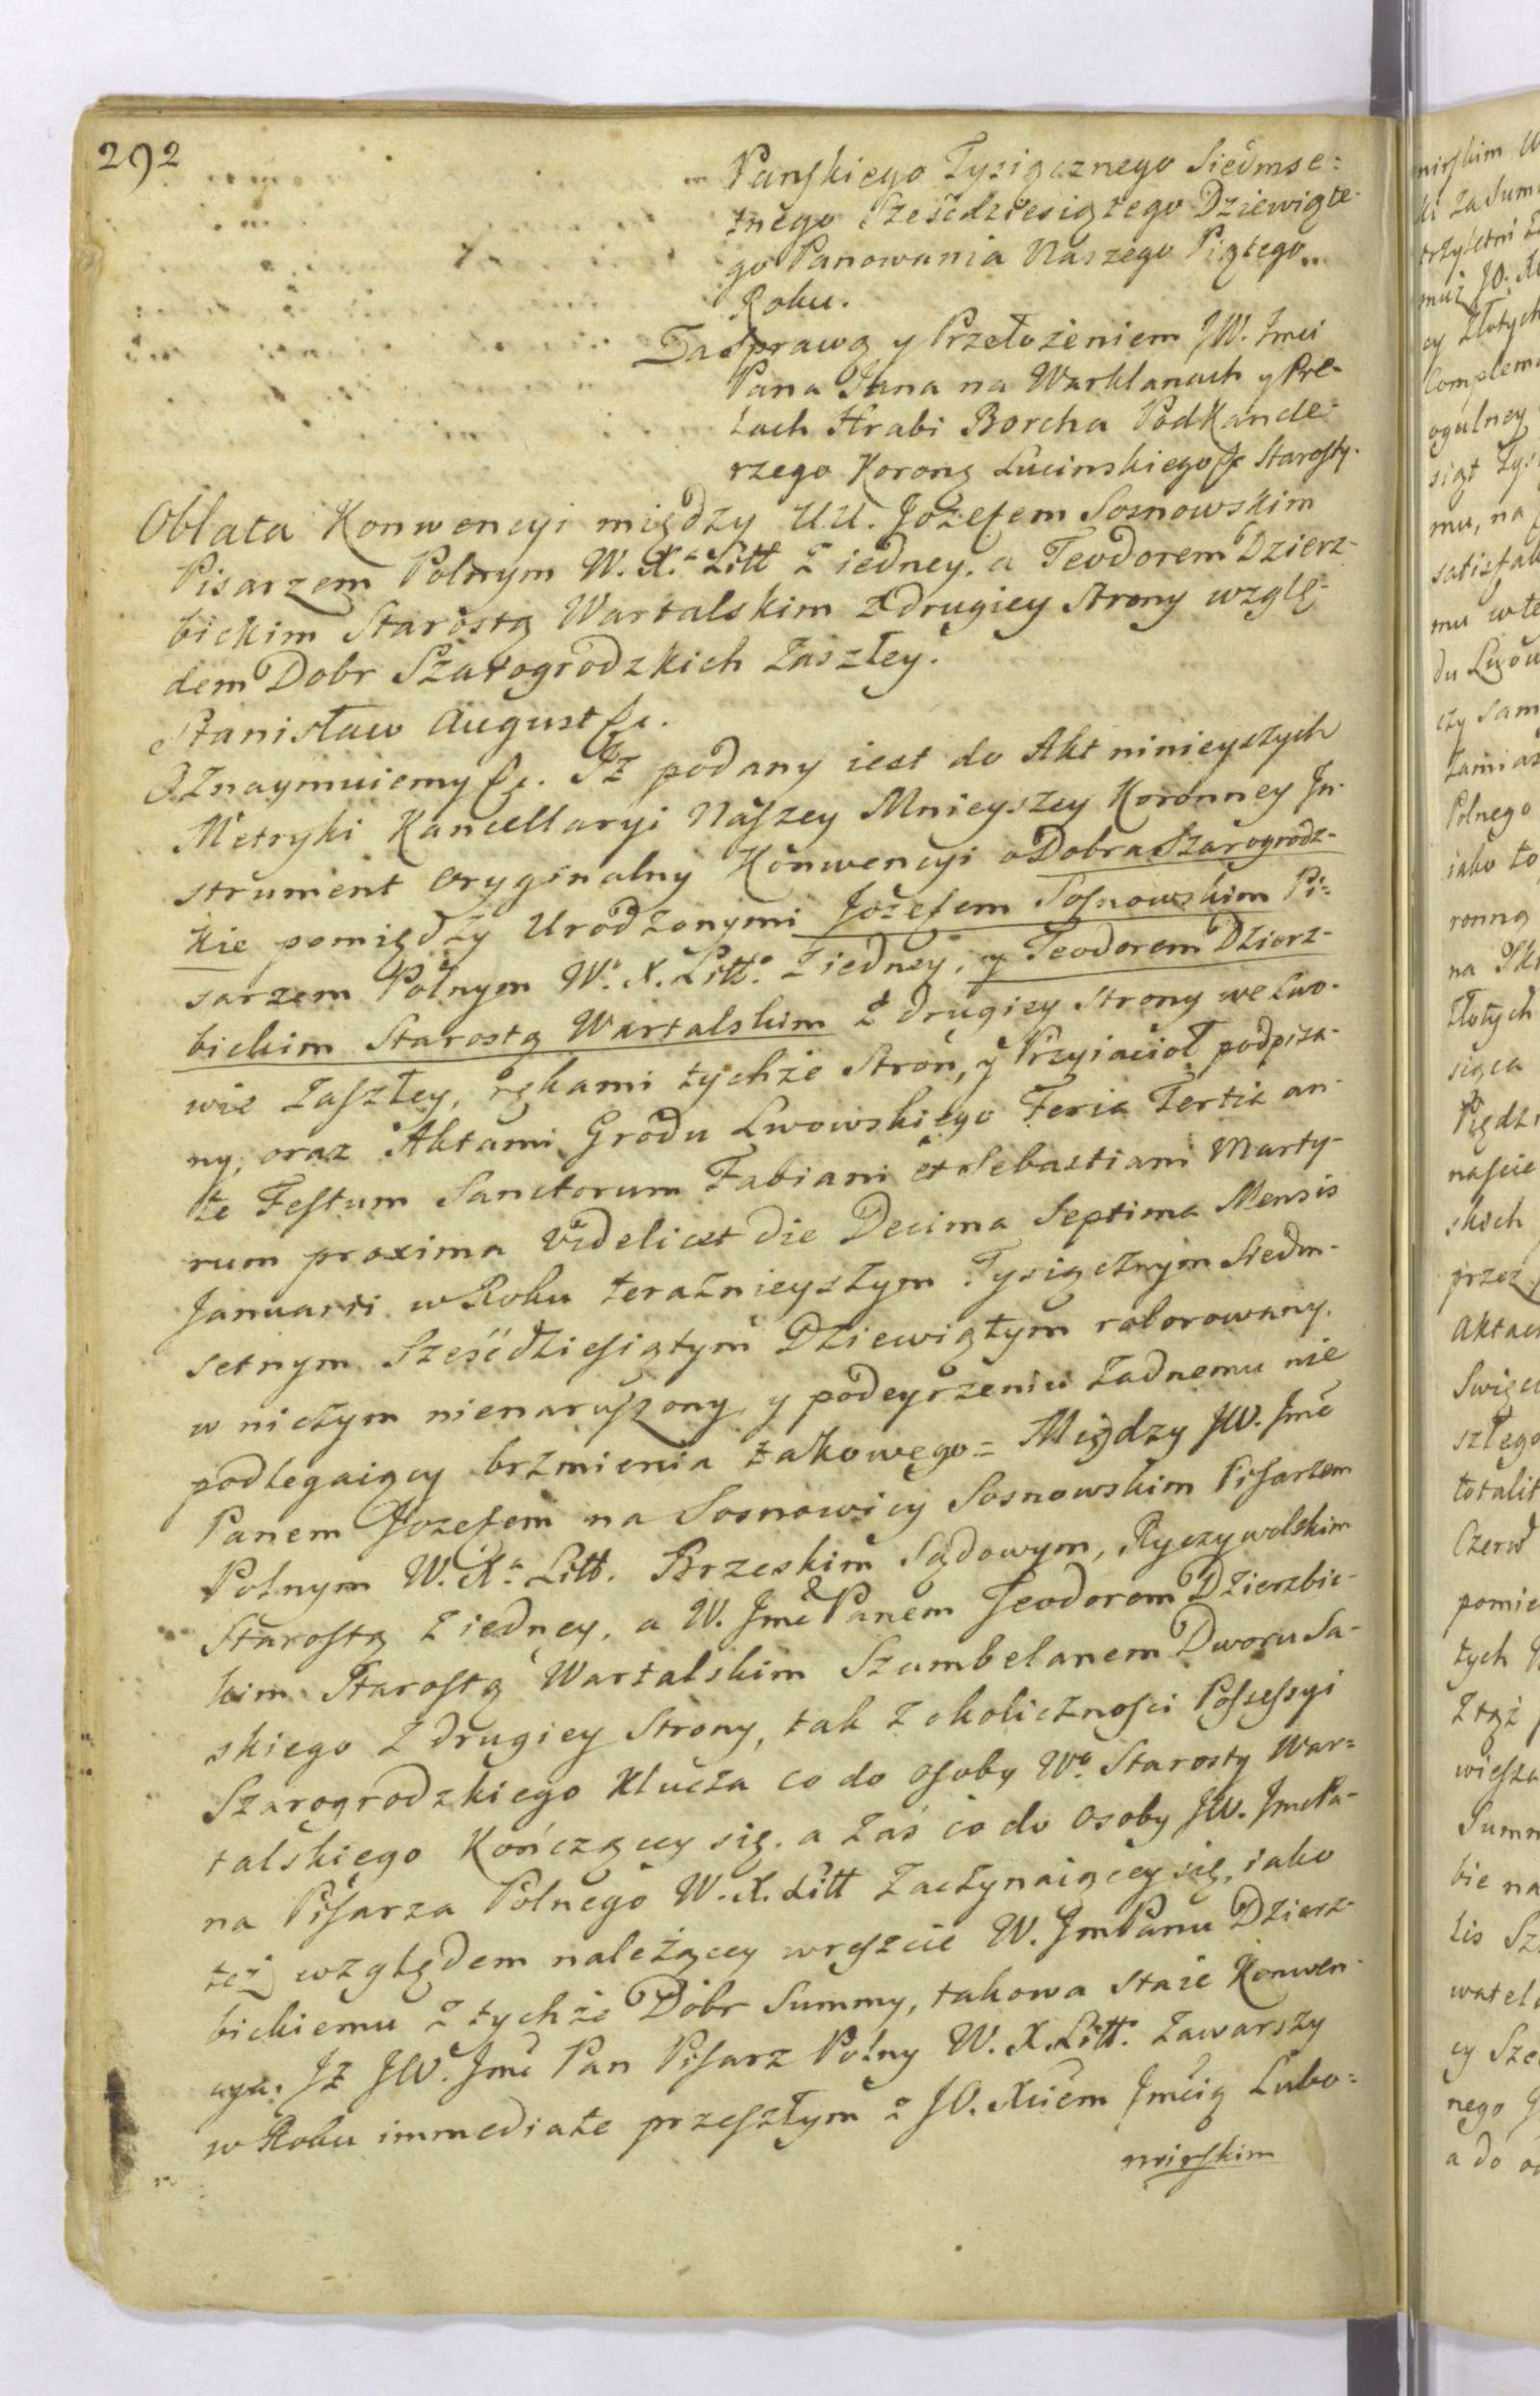 292
Panskiego Tysiącznego Siedmse=
tnego Sześćdziesiątego Dziewiąte-
go Panowania Naszego Piątego
Roku.
Za Sprawą y Przełożeniem JW. Jmci
Pana Jana na Warklanach y Pre-
lach Hrabi Borcha PodKancle-
rzego Korong Lucinskiego &c Starosty.
Oblata Konwencyi między UU. Jozefem Sosnowskim
Pisarzem Polnym W. X.a Litt z iedney. a Teodorem Dzierz-
bickim Starostą Wartalskim z drugiey Strony wzglę-
dem Dobr Szarogrodzkich Zaszłey.
Stanisław August &c.
Oznaymuiemy &c. Iż podany iest do Akt ninieyszych
Metryki Kancellaryi Naszey Mnieyszey Koronney In-
strument oryginalny Konwencyi o Dobra Szarogrodz-
kie pomiędzy Urodzonymi Jozefem Sosnowskim Pi=
sarzem Polnym W.o X. Litt.o z iedney, y Teodorem Dzierz-
bickim Starostą Wartalskim z drugiey Strony we Lwo-
wie Zaszłey, rękami tychże Stron, y Przyiacioł podpisa-
ny, oraz Aktami Grodu Lwowskiego Feria Tertia an-
te Festum Sanctorum Fabiani et Sebastiani Marty-
rum proxima videlicet die Decima Septima Mensis
Januarii w Roku teraznieyszym Tysiącznym Siedm-
setnym Sześćdziesiątym Dziewiątym roborowany.
w niczym nienaruszony, y podeyrzeniu żadnemu nie
podlegaiący brzmienia takowego = Między JW. Jmć
Panem Jozefem na Sosnowicy Sosnowskim Pisarzem
Polnym W. X.a Litt. Brzeskim Sądowym, Ryczywolskim
Starostą z iedney, a W. Jmć Panem Teodorem Dzierzbic-
kim Starostą Wartalskim Szambelanem Dworu Sa-
skiego z drugiey Strony, tak z okoliczności Possessyi
Szarogrodzkiego Klucza co do osoby Wo Starosty War=
talskiego Kończącey się. a zaś co do osoby JW. Jmć Pa-
na Pisarza Polnego W. X. Litt zaczynaiącey się, iako
też względem należącey wreszcie W. Jm Panu Dzierz-
bickiemu z tychże Dobr Summy, takowa staie Konwen-
cya: Iż JW. Jmć Pan Pisarz Polny W. X. Litt. zawarszy
w Roku immediate przeszłym z JO. Xciem Jmcią Lubo=
mirskim